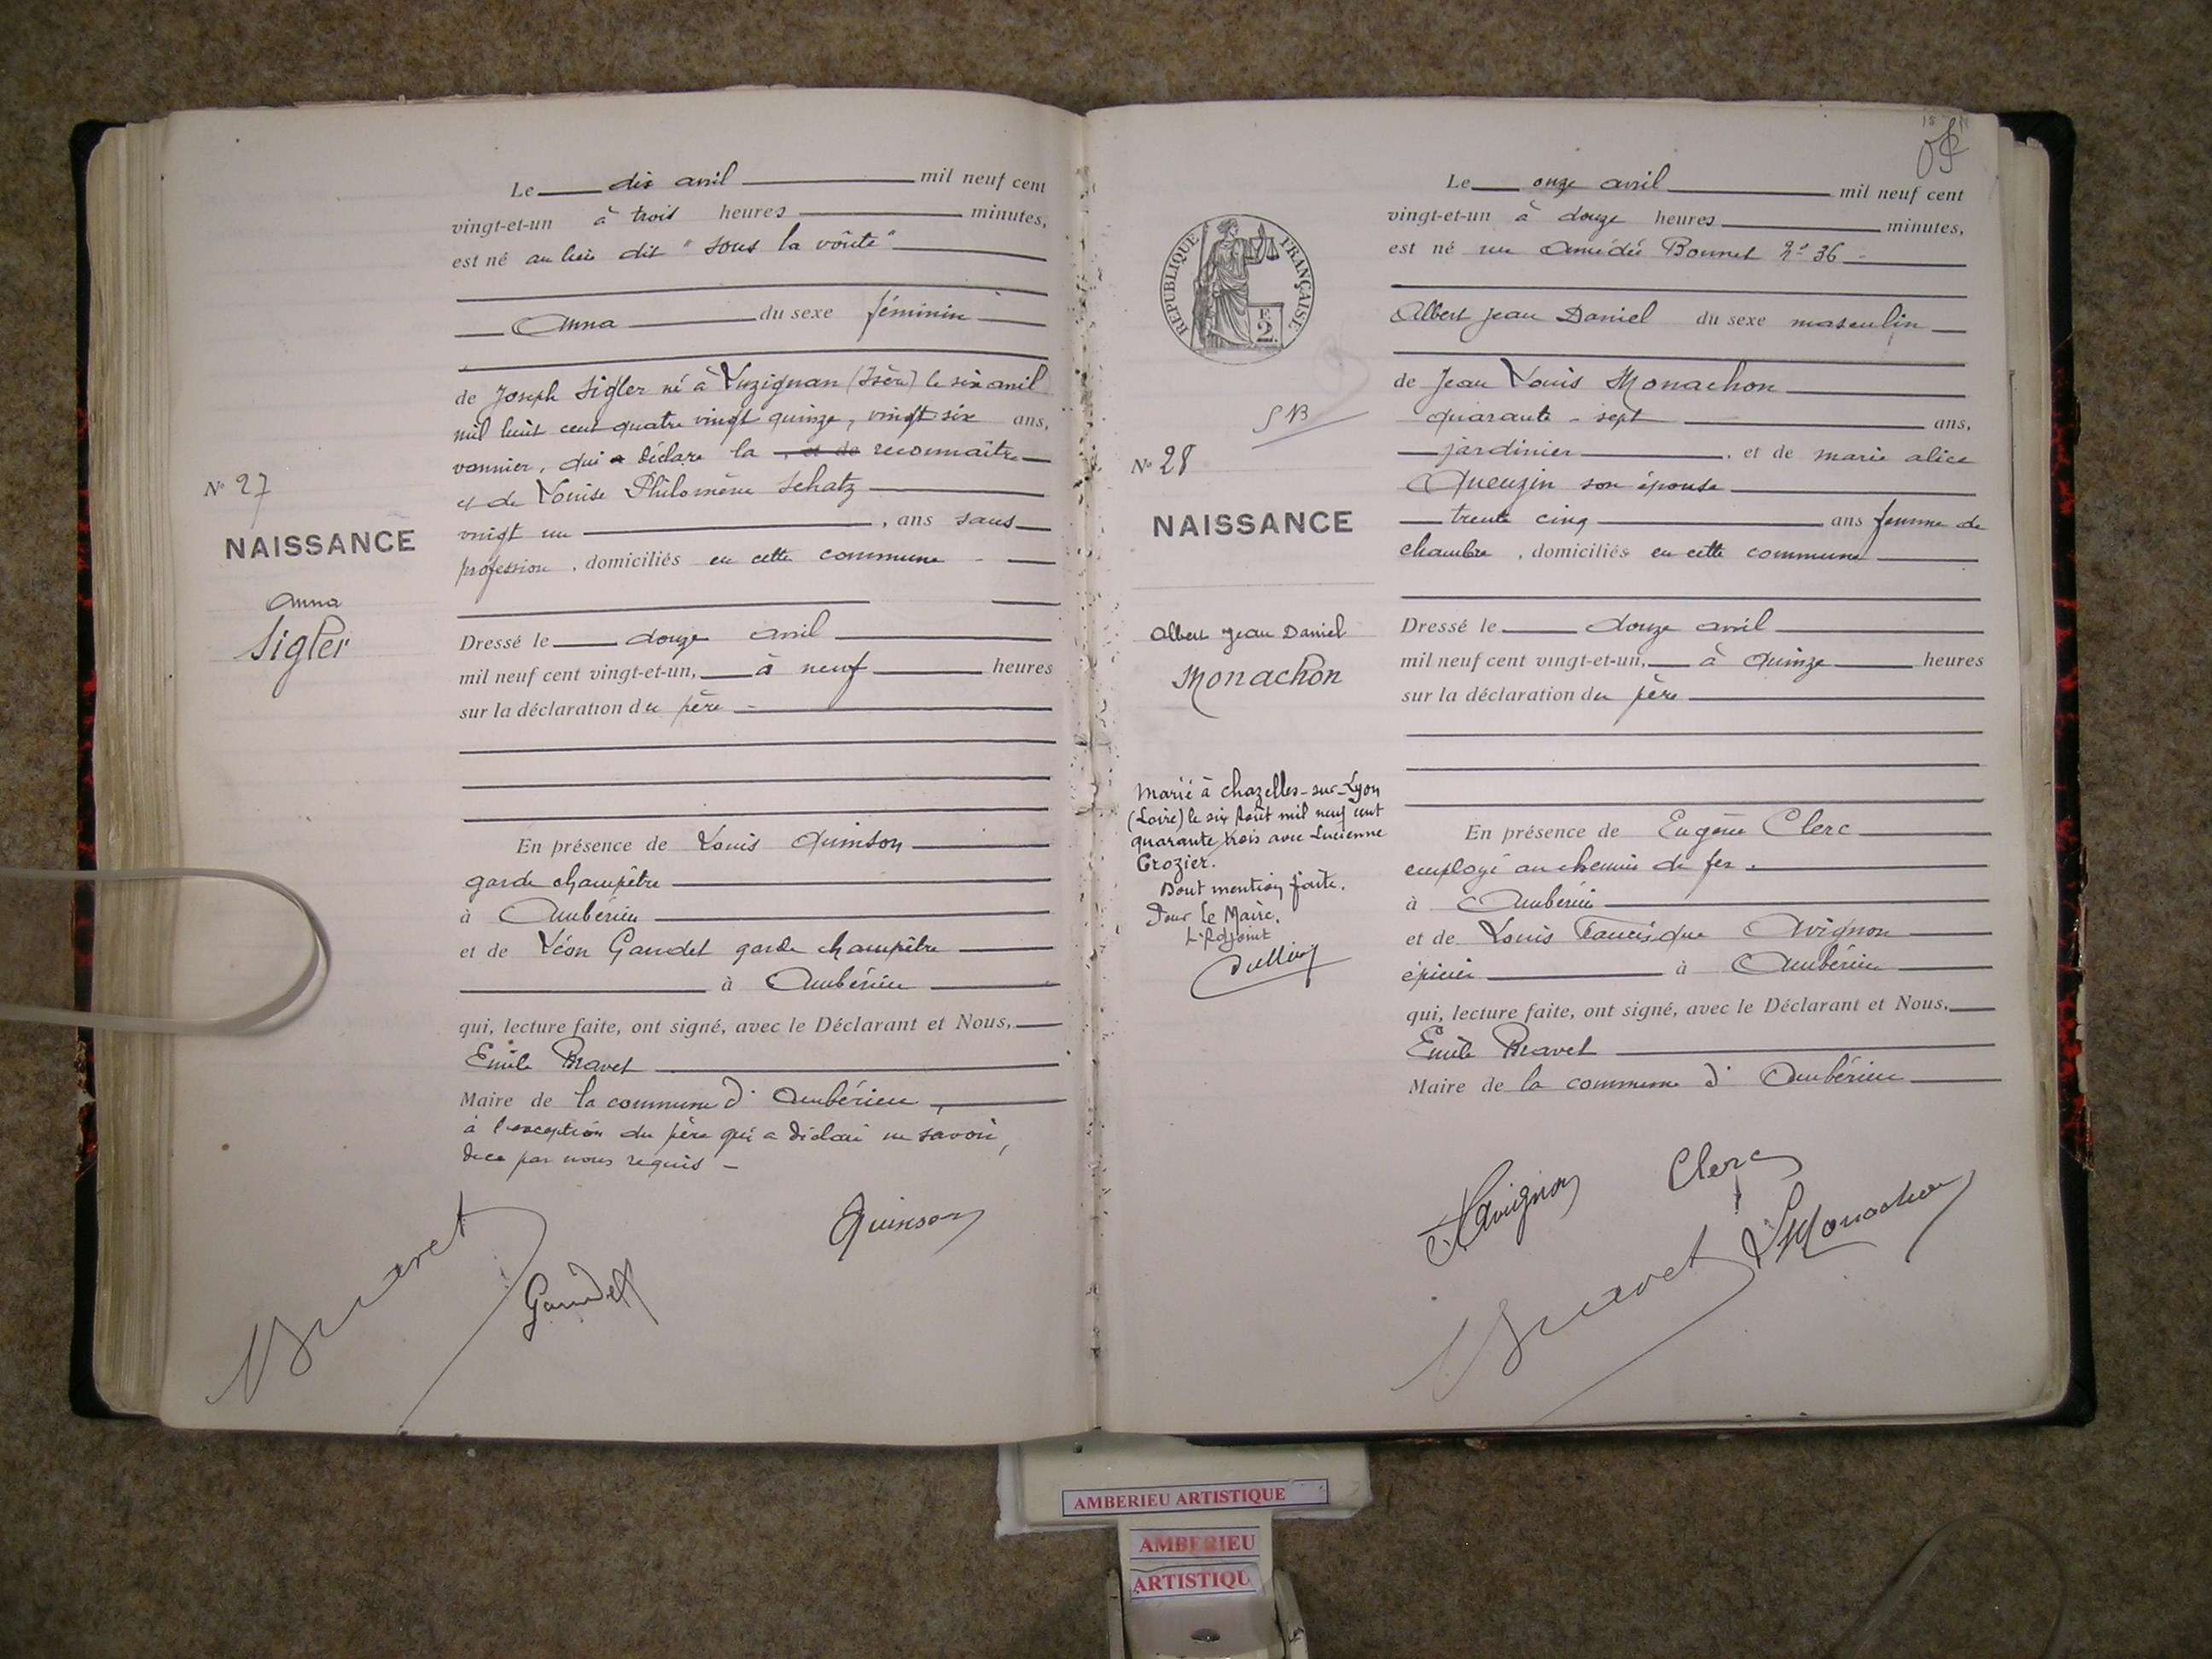 Le dix avril mil neuf cent
vingt-et-un à trois heures minutes,
est né au lieu dit "sous la voûte"
Anna du sexe féminin
de Joseph Sigler né à (Isère) le six avril
mil huit cent quatre vingt quinze, vingt six ans,
vannier, qui a déclaré la reconnaître
et de Louise Philomène Schatz
vingt un , ans sans
profession , domiciliés en cette commune
N° 27
NAISSANCE
Anna
Sigler
Dressé le douze avril
mil neuf cent vingt-et-un, à neuf heures
sur la déclaration du père
En présence de Louis Quinson
garde champêtre
à Ambérieu
et de Léon Gaudet garde champêtre
à Ambérieu
qui, lecture faite, ont signé, avec le Déclarant et Nous,
Emile Bravet
Maire de la commune d' Ambérieu,
à l'exception du père qui a déclaré ne savoir,
de ce par nous requis -
Bravet
Gaudet
Quinson
Le onze avril mil neuf cent
vingt-et-un à douze heures minutes,
est né rue Amédée Bonnet n° 36
Albert Jean Daniel du sexe masculin
de Jean Louis Monachon
quarante-sept ans,
jardinier , et de marie alice
son épouse
trente cinq ans femme de
chambre , domiciliés en cette commune
REPUBLIQUE FRANÇAISE
F.
2.
N° 28
NAISSANCE
Albert Jean Daniel
Monachon
Marié à Chazelles-sur-Lyon
(Loire) le six Août mil neuf cent
quarante trois avec Lucienne
Crozier.
Dont mention faite.
Pour Le Maire,
L'Adjoint
Dressé le douze avril
mil neuf cent vingt-et-un, à quinze heures
sur la déclaration du père
En présence de Eugène Clerc
employé au chemin de fer
à Ambérieu
et de Louis Francisque Avignon
épicier à Ambérieu
qui, lecture faite, ont signé, avec le Déclarant et Nous,
Emile Bravet
Maire de la commune d' Ambérieu
Avignon
Clerc
Bravet
Monachon
AMBERIEU ARTISTIQUE
AMBERIEU
ARTISTIQU